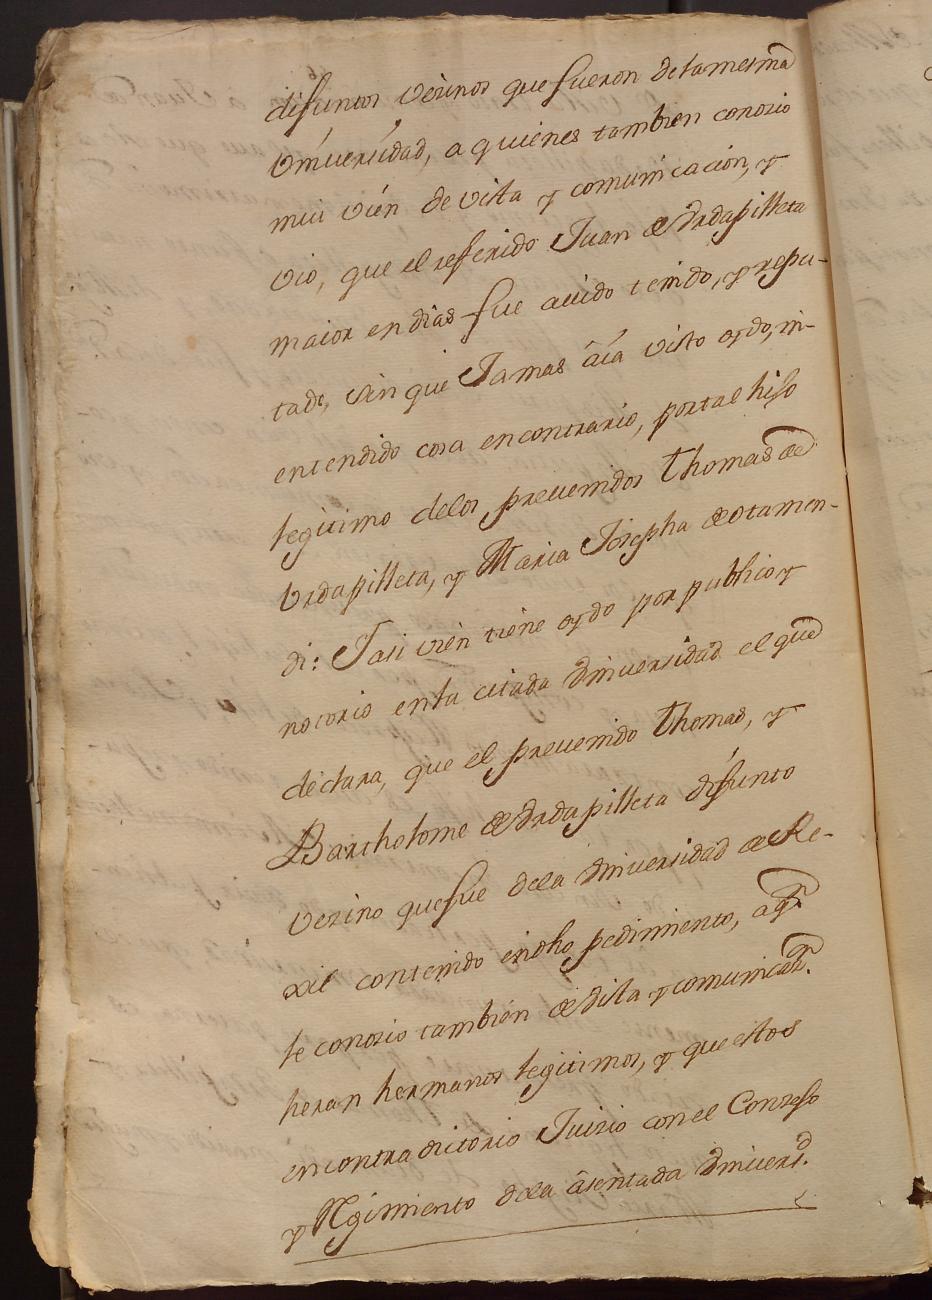 difuntos vezinos que fueron de la mesma
Vniuersidad, a quienes tambien conozio
mui vien de vista y comunicacion, y
vio, que el referido Juan de Vrdapilleta
maior en dias fue auido tenido, y repu-
tado, sin que Jamas aía visto oydo, ni-
entendido cosa en contrario, por tal hiso
legitimo delos preuenidos Thomas de
Vrdapilleta, y Maria Josepha de otamen-
di: Jasi vien tiene oydo por publico y
notorio en la citada Vniuersidad el que
declara, que el preuenido Thomas, y
Bartholome de Vrdapilleta difunto
vezino que fue dela Vniuersidad de Re-
xil contenido en dho pedimiento, a qn.
le conozio tambien de vista y comunicazn.
heran hermanos legitimos, y que estos
en contradictorio Juizio con el Conzeso
y Regimiento dela asentada Vniuersd.